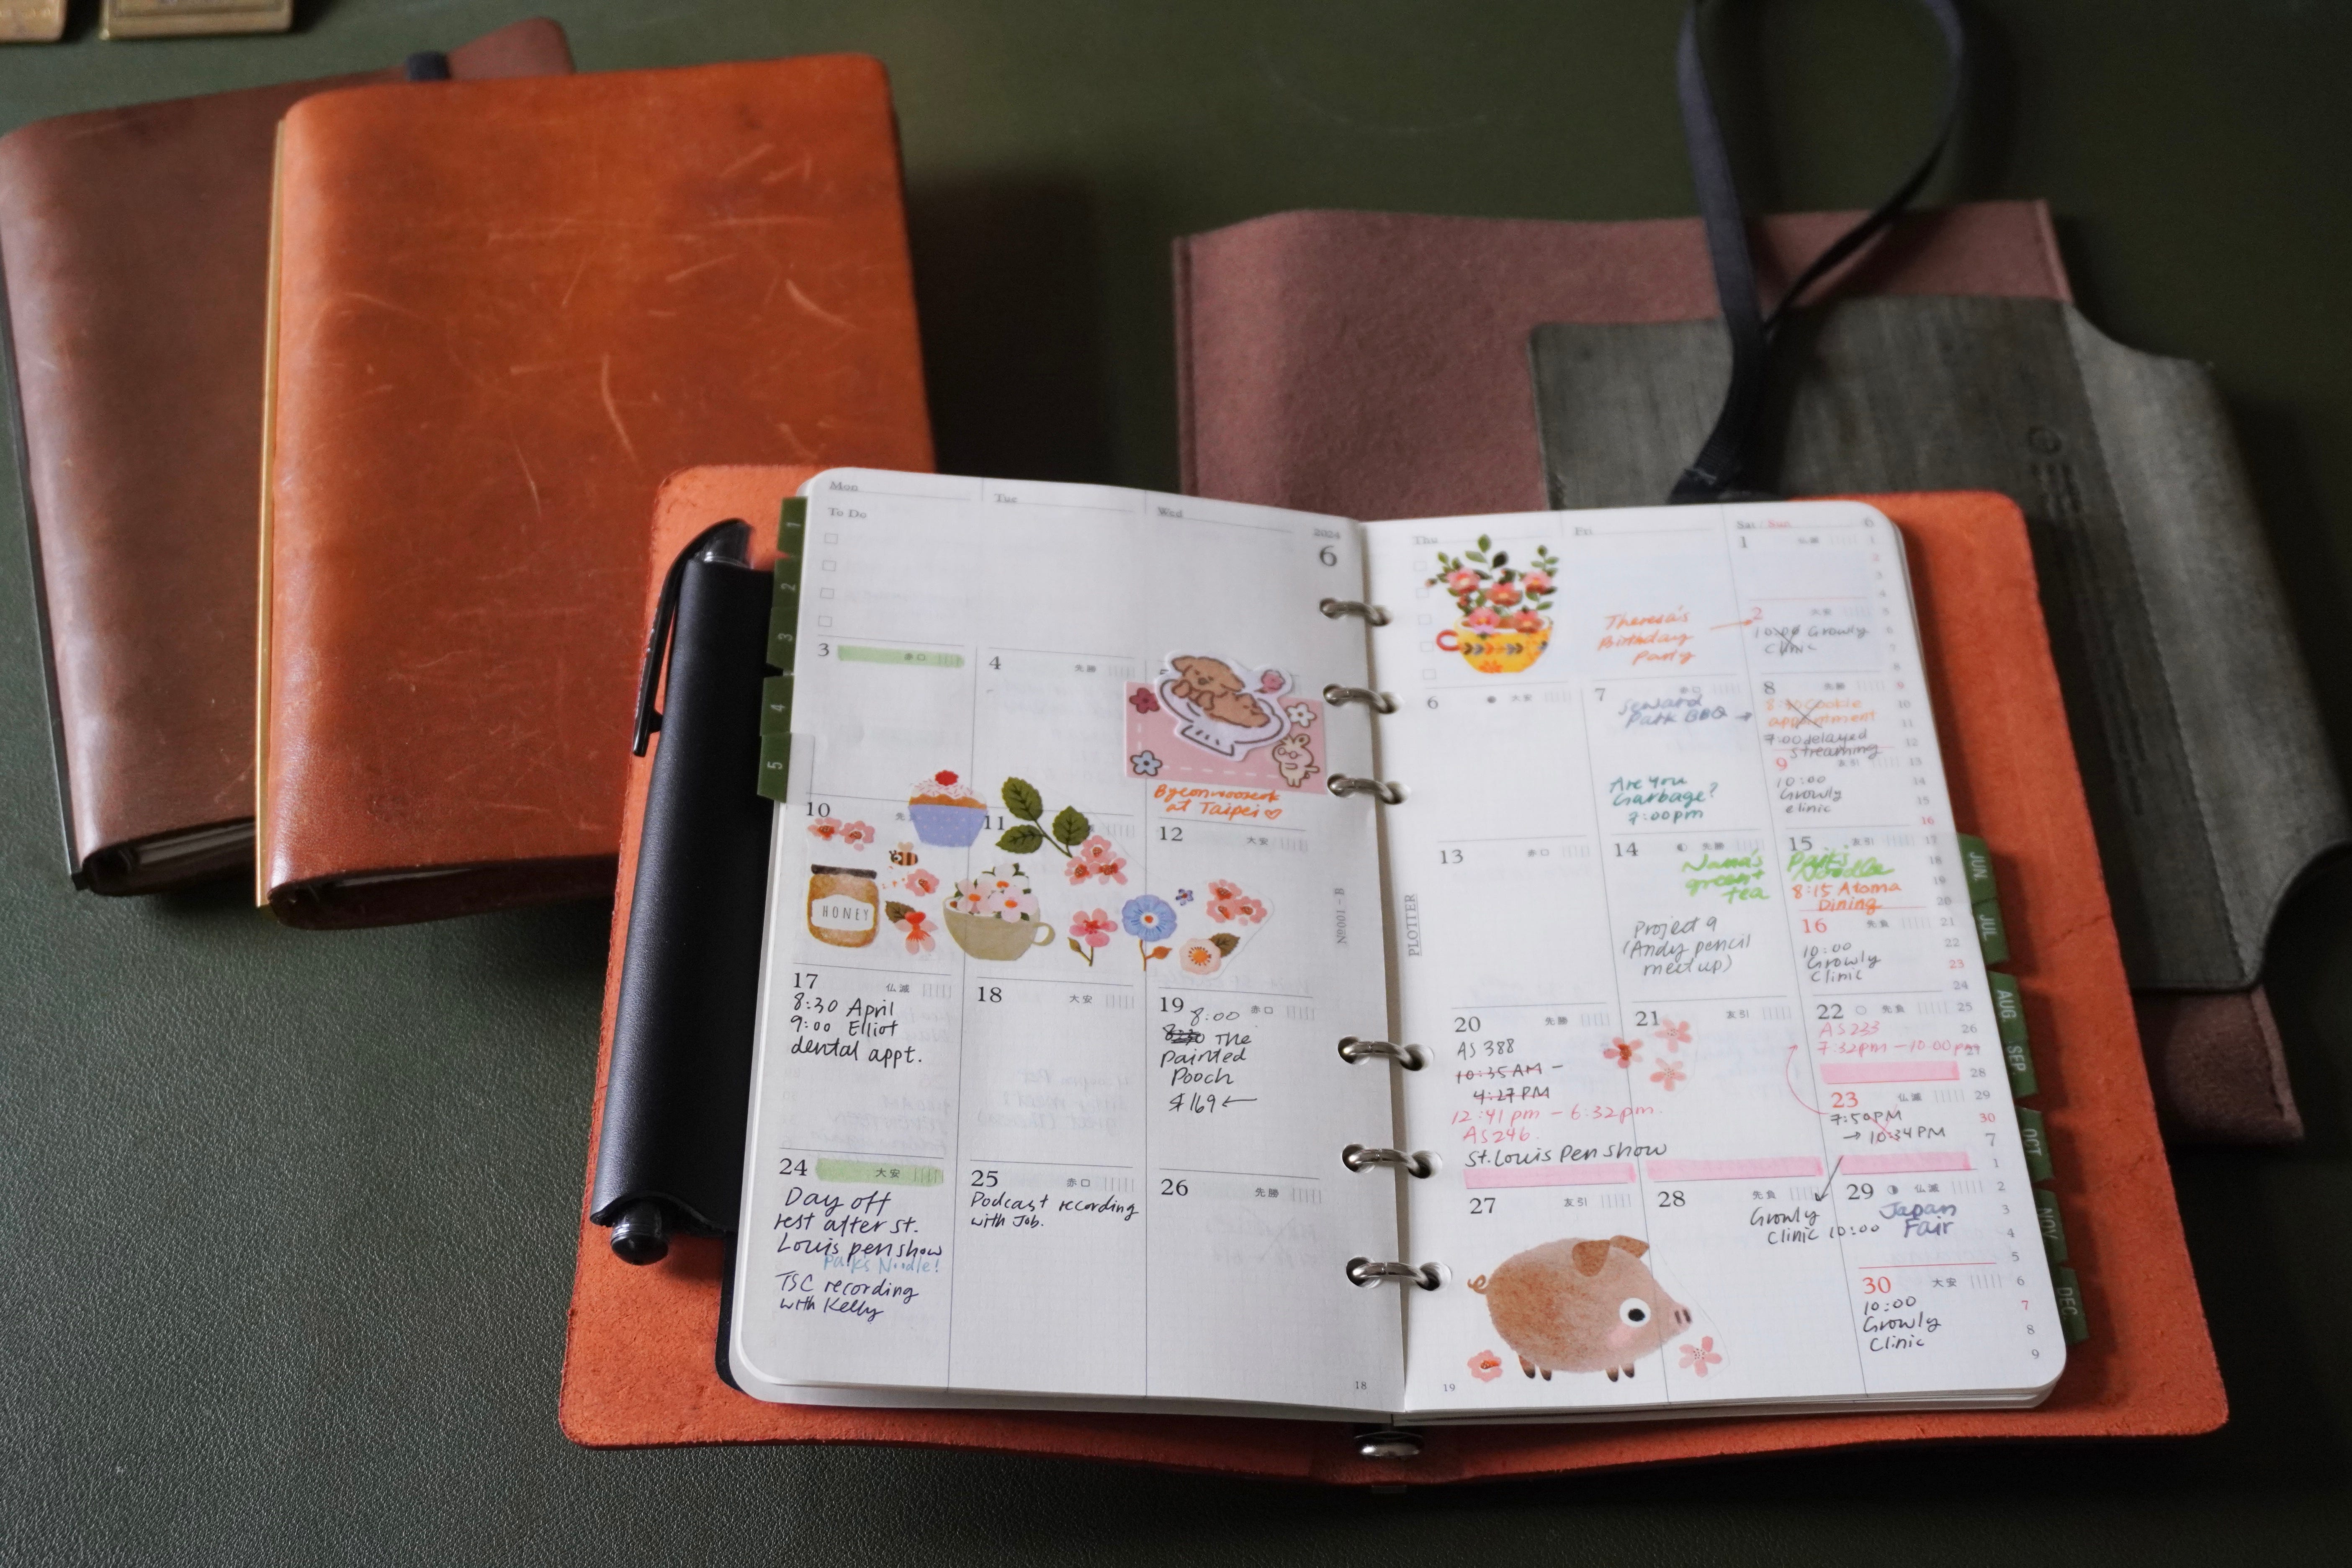 Mon
Tue
Wed
To Do
2024
6
3 赤口
4 先勝
Byeonwooseok
at Taipei ♡
10
11
12 大安
HONEY
17 仏滅
8:30 April
9:00 Elliot
dental appt.
18 大安
19 8:00 赤口
8:30 The
Painted
Pooch
$169 ←
24 大安
Day off
rest after St.
Louis pen show
Parks Noodle!
TSC recording
with Kelly
25 赤口
Podcast recording
with Job.
26 先勝
No001-B
18
1
2
3
4
5
PLOTTER
Thu
Fri
Sat / Sun
6
1
Theresa's
Birthday
Party
2 大安
10:00 Growly
Clinic
6 大安
7
Seward
Park BBQ →
Are You
Garbage?
7:00pm
8 先勝
8:30 Cookie
appointment
7:00 delayed
streaming
9 友引
10:00
Growly
clinic
13 赤口
14 先勝
Nana's
green
tea
Project 9
(Andy pencil
meet up)
15 友引
Park's
Noodle
8:15 Atoma
Dining
16 先負
10:00
Growly
Clinic
20 先勝
AS 388
10:35 AM -
4:27 PM
12:41 pm - 6:32 pm.
AS 246.
St. Louis Pen Show
21 友引
22 先負
AS 233
7:32pm - 10:00pm
23 仏滅
7:50PM
→ 10:34 PM
27 友引
28 先負
Growly
Clinic 10:00
29 仏滅
Japan
Fair
30 大安
10:00
Growly
Clinic
19
1
2
3
4
5
6
7
8
9
10
11
12
13
14
15
16
17
18
19
20
21
22
23
24
25
26
27
28
29
30
7
1
2
3
4
5
6
7
8
9
JUN.
JUL.
AUG.
SEP.
OCT.
NOV.
DEC.